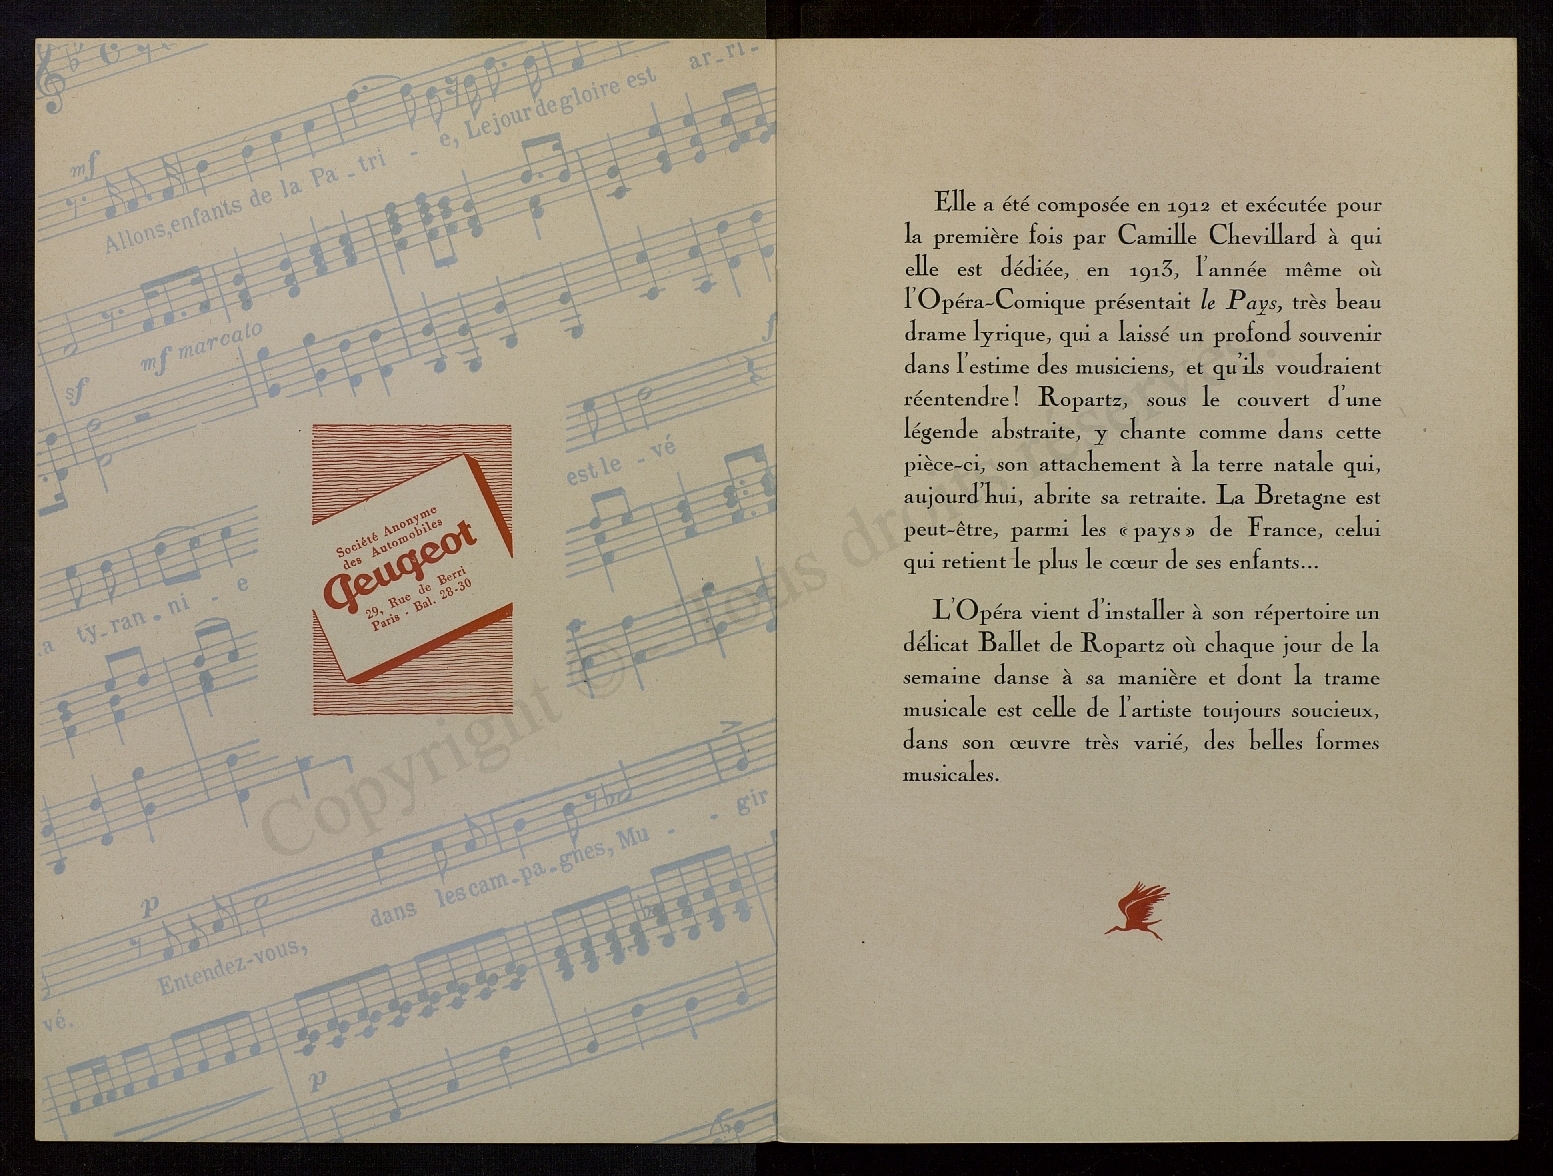 mf
Allons, enfants de la Pa - tri - e, Le jour de gloire est ar - ri -
mf marcato
sf
f
est le - vé
ty - ran - ni - e
Société Anonyme
des Automobiles
Peugeot
29, Rue de Berri
Paris - Bal. 28-30
p
Entendez-vous, dans les cam - pa - gnes, Mu - - gir
vé.
p
Elle a été composée en 1912 et exécutée pour
la première fois par Camille Chevillard à qui
elle est dédiée, en 1913, l'année même où
l'Opéra-Comique présentait le Pays, très beau
drame lyrique, qui a laissé un profond souvenir
dans l'estime des musiciens, et qu'ils voudraient
réentendre! Ropartz, sous le couvert d'une
légende abstraite, y chante comme dans cette
pièce-ci, son attachement à la terre natale qui,
aujourd'hui, abrite sa retraite. La Bretagne est
peut-être, parmi les « pays » de France, celui
qui retient le plus le cœur de ses enfants...
L'Opéra vient d'installer à son répertoire un
délicat Ballet de Ropartz où chaque jour de la
semaine danse à sa manière et dont la trame
musicale est celle de l'artiste toujours soucieux,
dans son œuvre très varié, des belles formes
musicales.
Copyright © - Tous droits réservés.